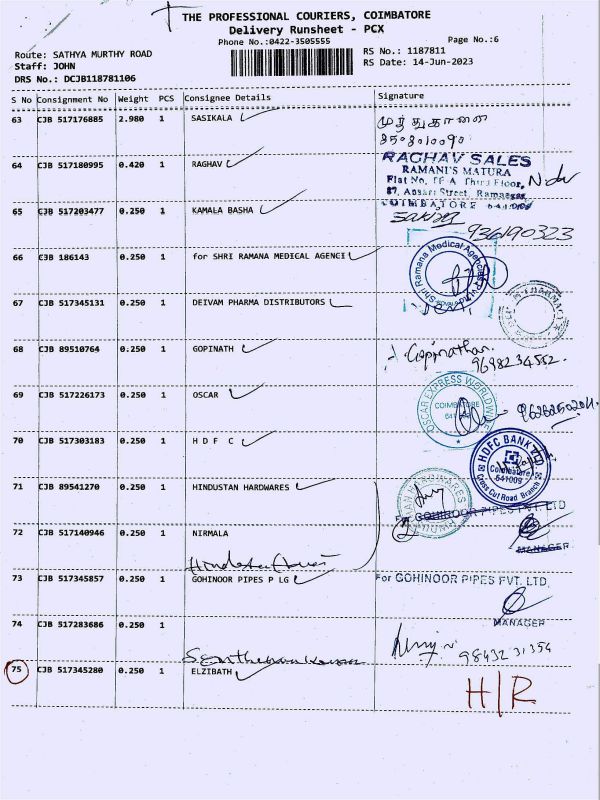 THE PROFESSIONAL COURIERS, COIMBATORE
Delivery Runsheet - PCX
Phone No.:0422-3505555
Page No.:6
Route: SATHYA MURTHY ROAD
RS No.: 1187811
Staff: JOHN
RS Date: 14-Jun-2023
DRS No.: DCJB118781106
S No Consignment No Weight PCS Consignee Details Signature
63 CJB 517176885 2.980 1 SASIKALA
64 CJB 517180995 0.420 1 RAGHAV
RAGHAV SALES
RAMANI'S MATURA
Third Floor,
87, Ansari Street, Ramnagar,
COIMBATORE
65 CJB 517203477 0.250 1 KAMALA BASHA
936190323
66 CJB 186143 0.250 1 for SHRI RAMANA MEDICAL AGENCI
Shri Ramana Medical Agencies
67 CJB 517345131 0.250 1 DEIVAM PHARMA DISTRIBUTORS
68 CJB 89510764 0.250 1 GOPINATH
Gopinathan
69 CJB 517226173 0.250 1 OSCAR
OSCAR EXPRESS WORLDWIDE
COIMBATORE
70 CJB 517303183 0.250 1 H D F C
HDFC BANK LTD
Coimbatore
641009
Cross Cut Road Branch
71 CJB 89541270 0.250 1 HINDUSTAN HARDWARES
For GOHINOOR PIPES PVT. LTD
72 CJB 517140946 0.250 1 NIRMALA
MANAGER
73 CJB 517345857 0.250 1 GOHINOOR PIPES P LG
For GOHINOOR PIPES PVT. LTD
MANAGER
74 CJB 517283686 0.250 1
98432 31354
75 CJB 517345280 0.250 1 ELZIBATH
H/R